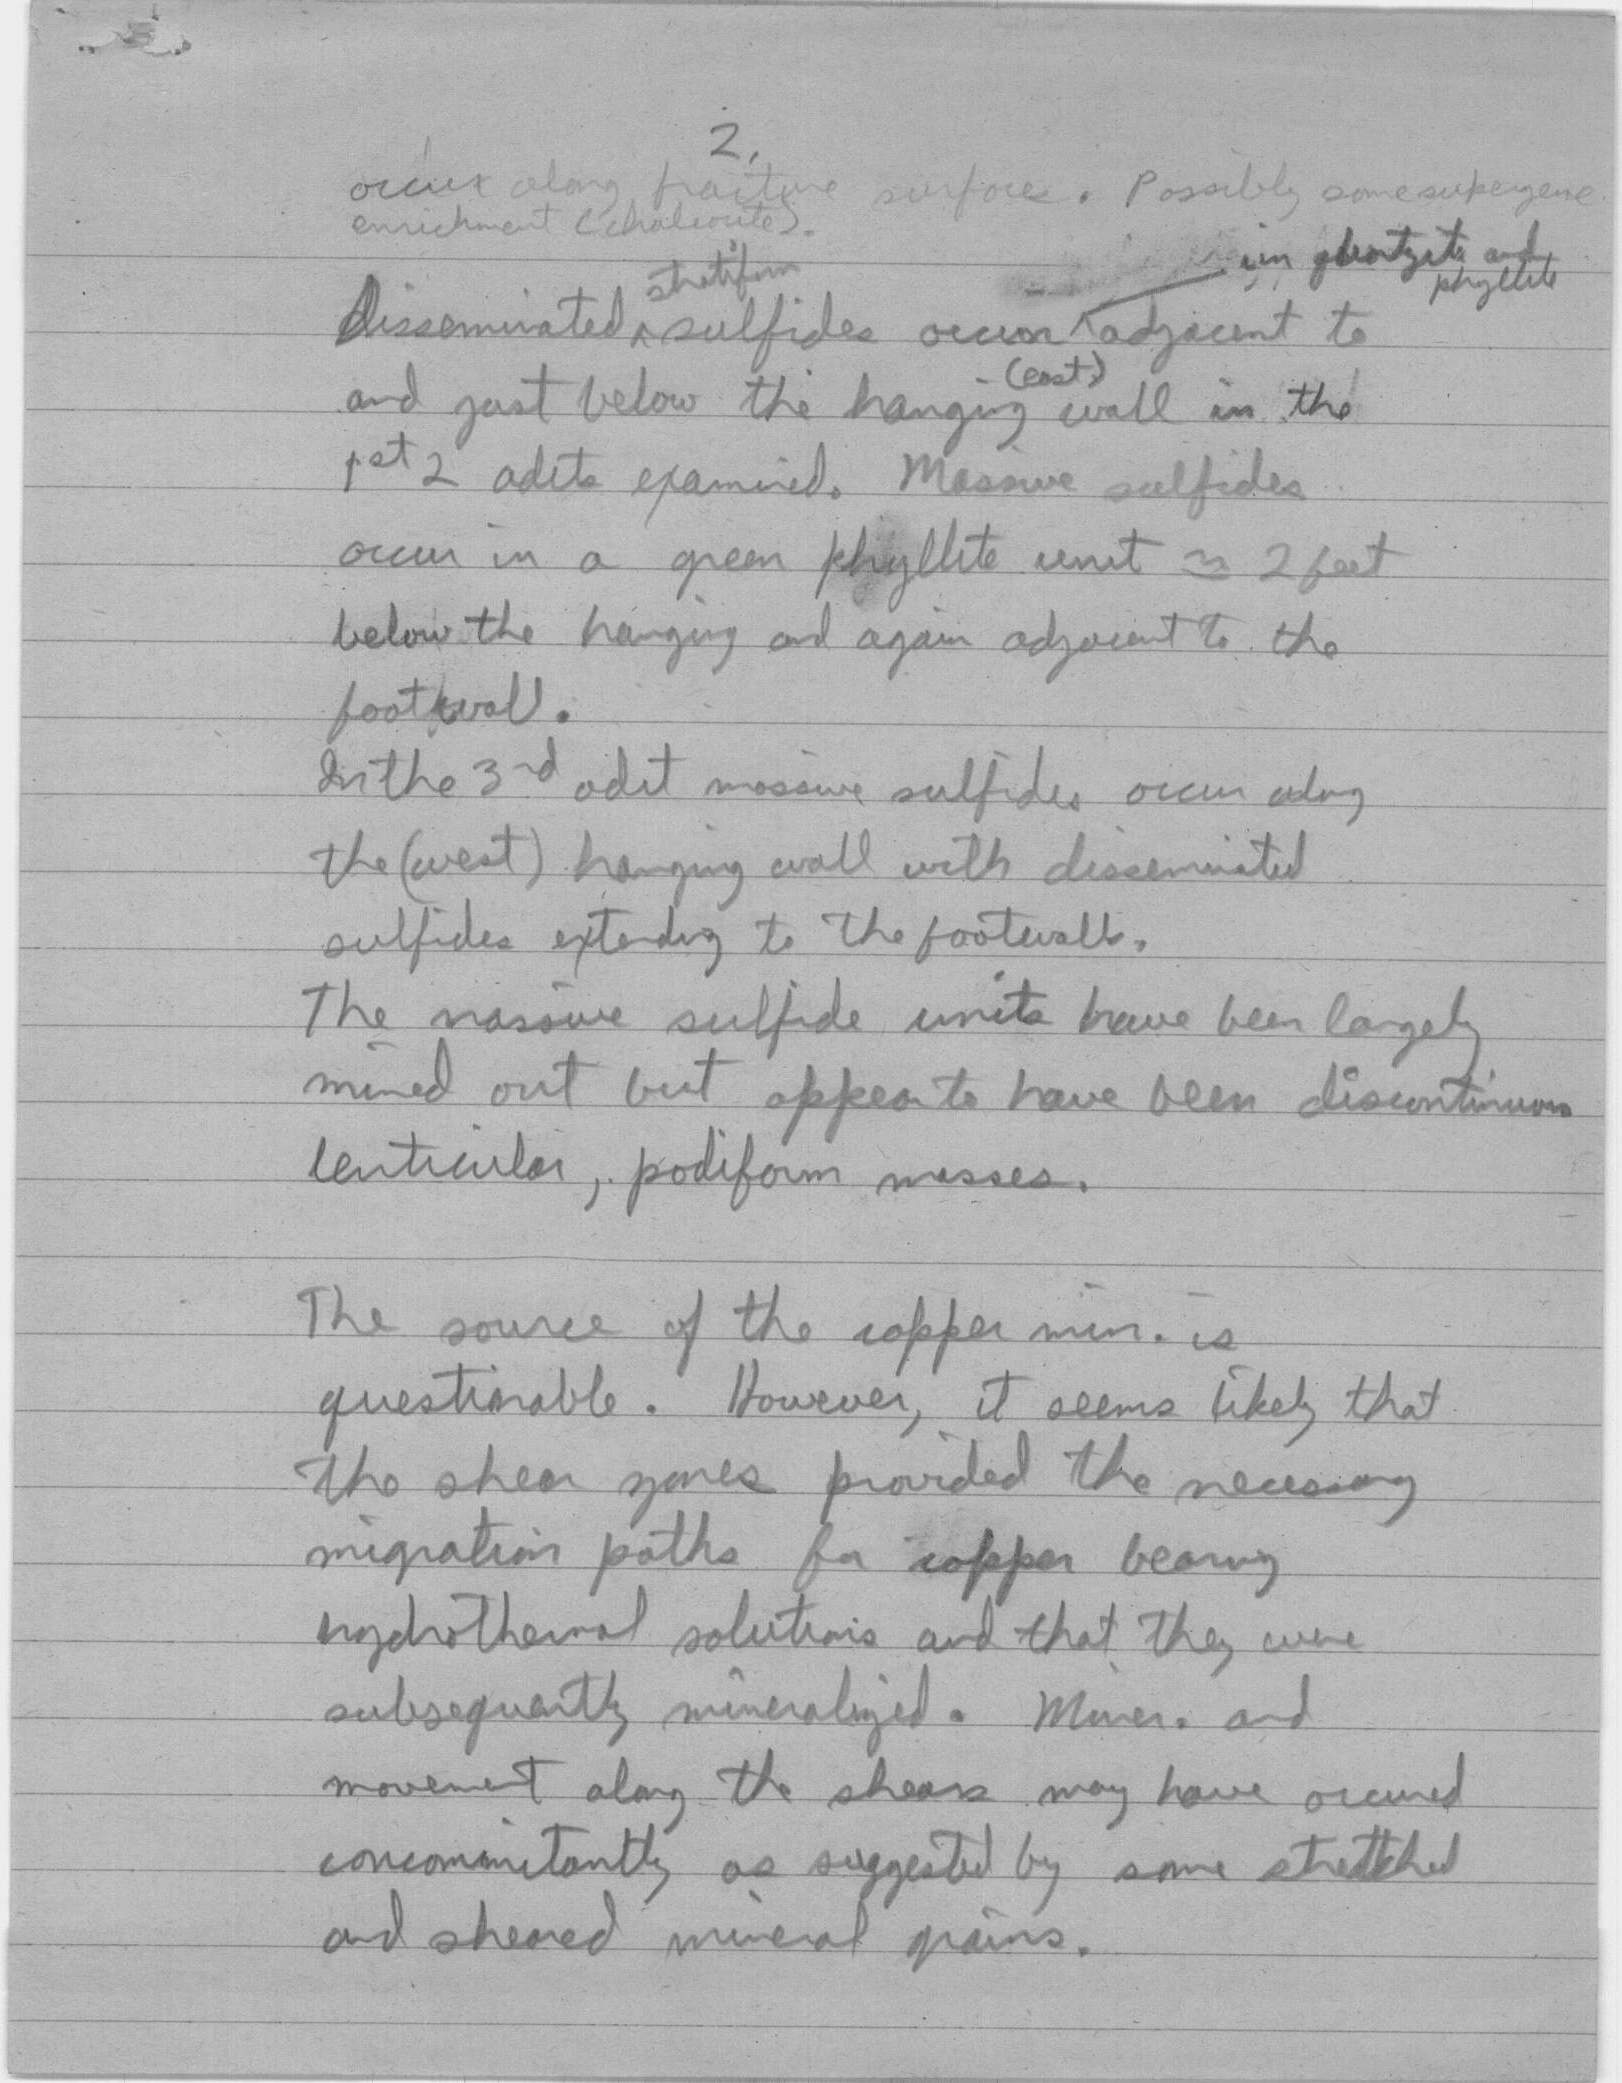 2.
occur along fracture surfaces. Possibly some supergene
enrichment (chalcocite).
stratiform
in quartzite and
phyllite
Disseminated ^ sulfides occur ^ adjacent to
(east)
and just below the hanging wall in the
1st 2 adits examined. Massive sulfides
occur in a green phyllite unit ≃ 2 feet
below the hanging and again adjacent to the
footwall.
In the 3rd adit massive sulfides occur along
the (west) hanging wall with disseminated
sulfides extending to the footwall.
The massive sulfide units have been largely
mined out but appear to have been discontinuous
lenticular, podiform masses.
The source of the copper min. is
questionable. However, it seems likely that
the shear zones provided the necessary
migration paths for copper bearing
hydrothermal solutions and that they were
subsequently mineralized. Miner. and
movement along the shears may have occured
concommitantly as suggested by some stretched
and sheared mineral grains.